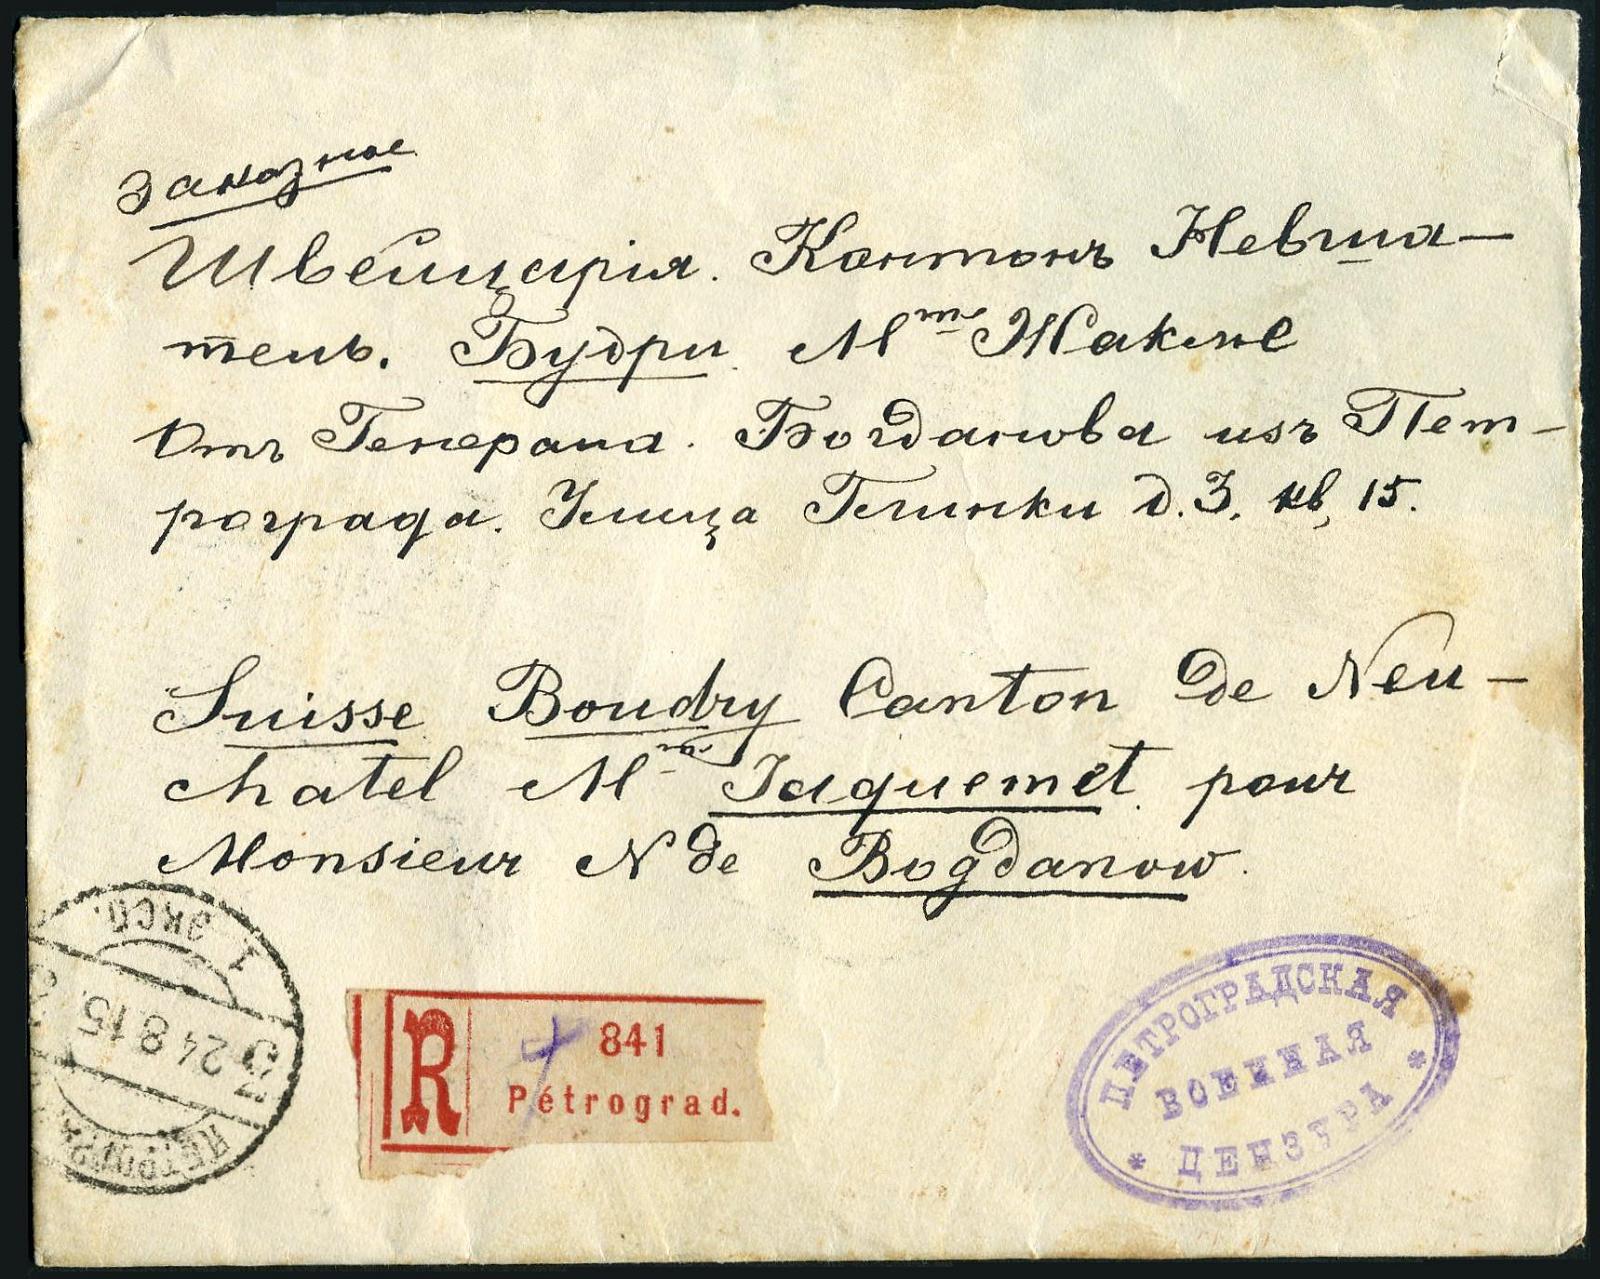 Заказное
Швейцарія. Кантонъ Невша-
тель. Будри. М^me Жакме
Отъ Генерала. Богданова изъ Пет-
рограда. Улица Глинки д. 3. кв. 15.
Suisse Boudry Canton de Neu-
chatel M^me Jaquemet pour
Monsieur N de Bogdanow.
1 ЭКСП.
24 8 15.
ПЕТРОГРА
R
841
Pétrograd.
ПЕТРОГРАДСКАЯ
ВОЕННАЯ
* ЦЕНЗУРА *